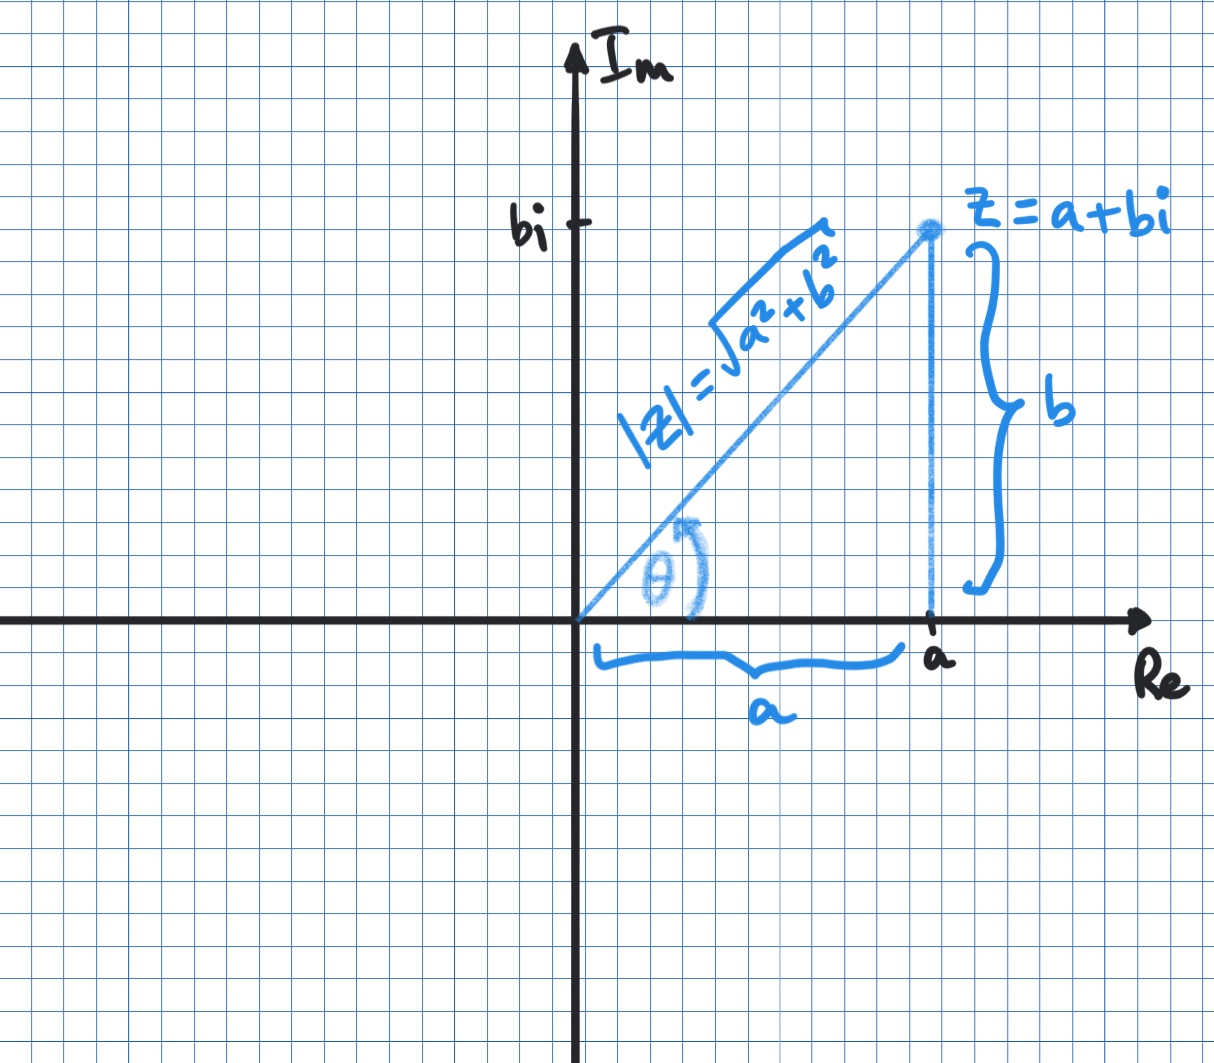 Im
bi
z = a + bi
|z| = √a² + b²
b
θ
a
a
Re